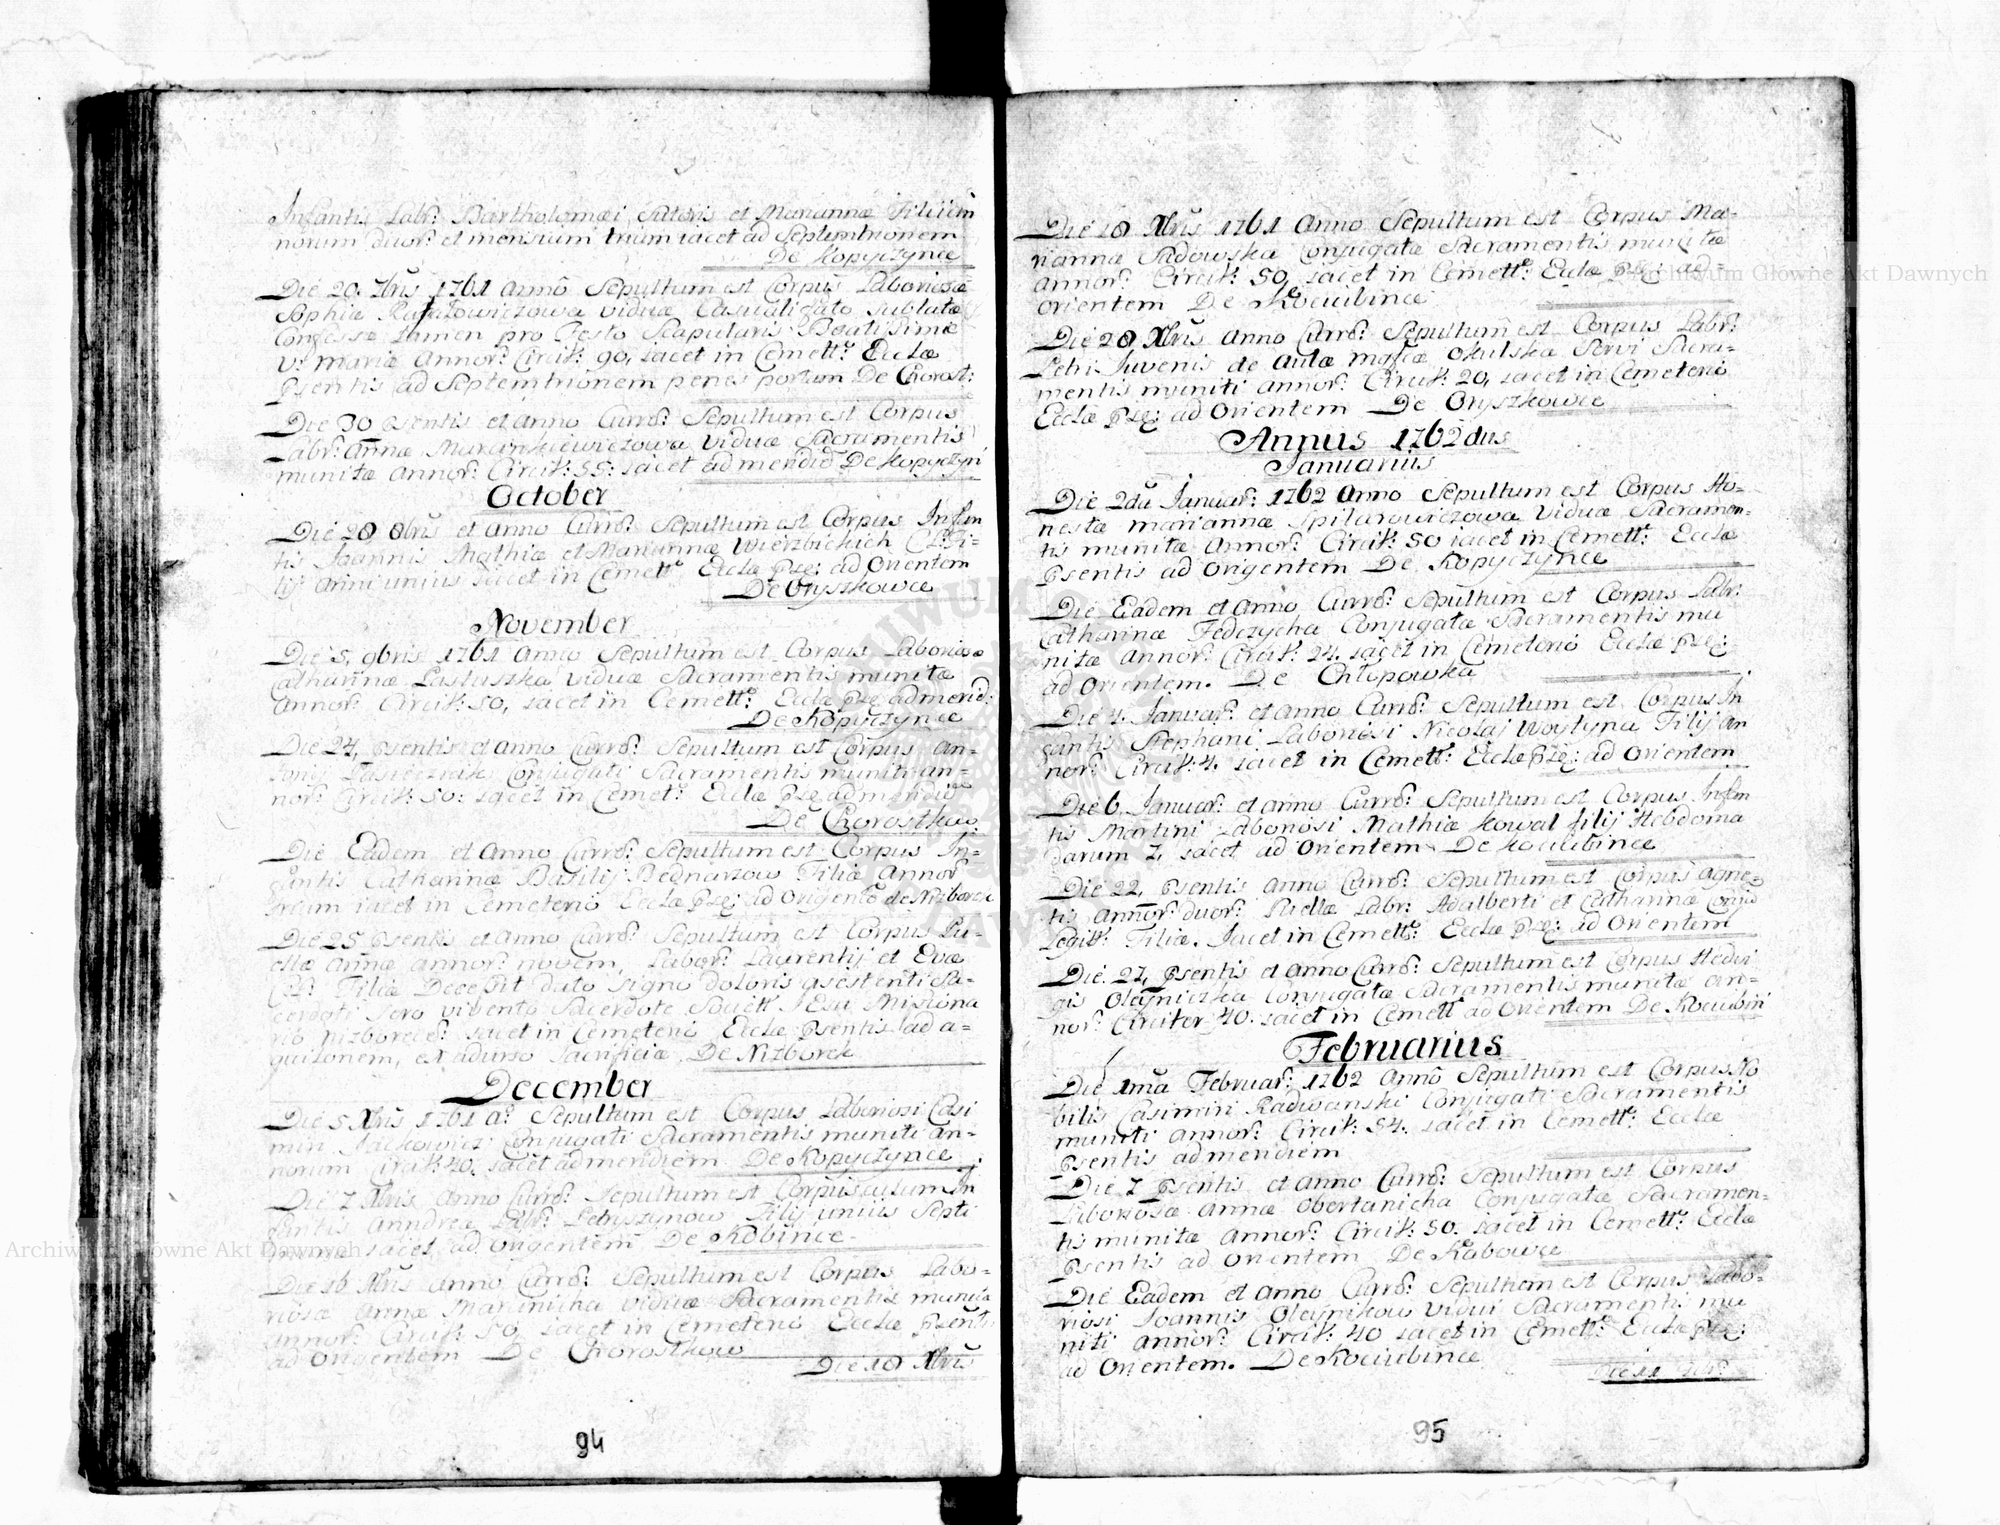 Infantis Labr: Bartholomæi Sutoris et Mariannæ Filij an
norum duor: et mensium trium iacet ad Septemtrionem
De Kopyczynce
Die 20. 7bris 1761 Anno Sepultum est Corpus Laboriosæ
Sophiæ viduæ Casualit: sublatæ
Confessæ tamen pro Festo Scapularis Beatissimæ
V: Mariæ Annor: Circit: 90, iacet in Cemett: Ecclæ
Psentis ad Septemtrionem penes portam De Chorost:
Die 30 psentis et anno Curr: Sepultum est Corpus
Labr: Annæ Marankiewiczowa viduæ Sacramentis
munitæ Annor: Circit: 55: iacet ad merid De Kopyczyn
October
Die 28 8bris et anno Curr: Sepultum est Corpus Infan
tis Joannis Mathiæ et Mariannæ Wierzbickich CL: Fi=
lij anni unius iacet in Cemett: Ecclæ Pse: ad Orientem
De Oryszkowce
November
Die 5. 9bris 1761 Anno Sepultum est Corpus Laboriosæ
Catharinæ Lastuszka viduæ Sacramentis munitæ
Annor: Circit: 50, iacet in Cemett: Ecclæ Pse: ad merid:
De Kopyczynce
Die 24, psentis et anno Curr: Sepultum est Corpus An=
tonij Conjugati Sacramentis muniti an=
nor: Circit: 50: iacet in Cemet: Ecclæ Pse ad meridie
De Chorostkow
Die Eadem et Anno Curr: Sepultum est Corpus In=
fantis Catharinæ Basilij Bednarzow Filiæ Annor
trium iacet in Cemeterio Ecclæ Pse: ad Origente de Nizborek
Die 25 psentis et Anno Curr: Sepultum est Corpus Pu=
ellæ Annæ annor: novem, Labor: Laurentij et Evæ
Filiæ Decessit dato signo doloris assistenti Sa=
cerdoti Sacerdote Societt: Jesu Missiona
rio Nizborece: iacet in Cemeterio Ecclæ Psentis ad a=
quilonem, De Nizborek
December
Die 5 Xbris 1761 A: Sepultum est Corpus Laboriosi Casi
miri Mackowicz Conjugati Sacramentis muniti an=
norum Circit: 40, iacet ad meridiem De Kopyczynce
Die 7 Xbris Anno Curr: Sepultum est Corpusculum In
fantis Anndreæ Labr: Petryszynow Filij unius Septi
manæ iacet ad Origentem De Kobince
Die 16 Xbris Anno Curr: Sepultum est Corpus Labo=
riosæ Annæ Marcinicha viduæ Sacramentis munitæ
annor: Circit: 50, iacet in Cemeterio Ecclæ Psentis
ad Origentem De Chorostkow
Die 18 Xbris
94
Die 18 Xbris 1761 Anno Sepultum est Corpus Ma=
riannæ Sadowska Conjugatæ Sacramentis munitæ
annor: Circit: 50, iacet in Cemett: Ecclæ Pse: ad
Orientem De Kociubince
Die 28 Xbris Anno Curr: Sepultum est Corpus Labr:
Petri Juvenis de Aula Okulska Servi Sacra=
mentis muniti annor: Circit: 20, iacet in Cemeterio
Ecclæ Pse: ad Orientem De Oryszkowce
Annus 1762dus
Januarius
Die 2da Januar: 1762 Anno Sepultum est Corpus Ho=
nestæ Mariannæ Spilarowiczowa viduæ Sacramen=
tis munitæ Annor: Circit: 50 iacet in Cemett: Ecclæ
Psentis ad Origentem De Kopyczynce
Die Eadem et Anno Curr: Sepultum est Corpus Labr:
Catharinæ Fedczycha Conjugatæ Sacramentis mu
nitæ annor: Circit: 24. iacet in Cemeterio Ecclæ Pse:
ad Orientem. De Chlopowka
Die 4. Januar: et anno Curr: Sepultum est Corpus In
fantis Stephani Laboriosi Nicolaj Woytyna Filij an
nor: Circit: 4. iacet in Cemett: Ecclæ Pse: ad Orientem
Die 6. Januar: et anno Curr: Sepultum est Corpus Infan
tis Martini Laboriosi Mathiæ Kowal filij Hebdoma
darum 7, iacet ad Orientem De Kociubince
Die 22, psentis Anno Curr: Sepultum est Corpus Agne=
tis Annor: duor: Puellæ Labr: Adalberti et Catharinæ Conjug
Legitt: Filiæ. Jacet in Cemett: Ecclæ Pse: ad Orientem
Die. 27, psentis et Anno Curr: Sepultum est Corpus Hedvi
gis Oleyniczka Conjugatæ Sacramentis munitæ an=
nor: Circiter 40. iacet in Cemett ad Orientem De Kociubin
Februarius
Die 1ma Februar: 1762 Anno Sepultum est Corpus No
bilis Casimiri Radwanski Conjugati Sacramentis
muniti Annor: Circit: 54. iacet in Cemett: Ecclæ
Psentis ad meridiem
Die 7 Psentis et anno Curr: Sepultum est Corpus
Laboriosæ Annæ Obertanicha Conjugatæ Sacramen=
tis munitæ Annor: Circit: 50. iacet in Cemett: Ecclæ
Psentis ad Orientem De Kabowce
Die Eadem et Anno Curr: Sepultum est Corpus Labo=
riosi Joannis Oleynikow Vidui Sacramentis mu
niti Annor: Circit: 40 iacet in Cemett: Ecclæ Pse:
ad Orientem. De Kociubince
Die 11
95
Archiwum Główne Akt Dawnych
Archiwum Główne Akt Dawnych